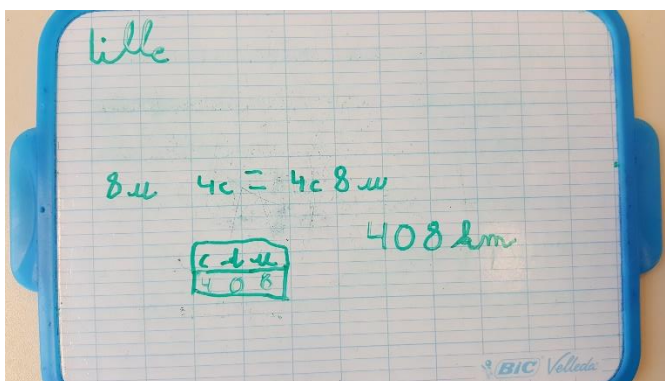 lille
8u 4c = 4c 8u
408 km
c d u
4 0 8
BIC Velleda